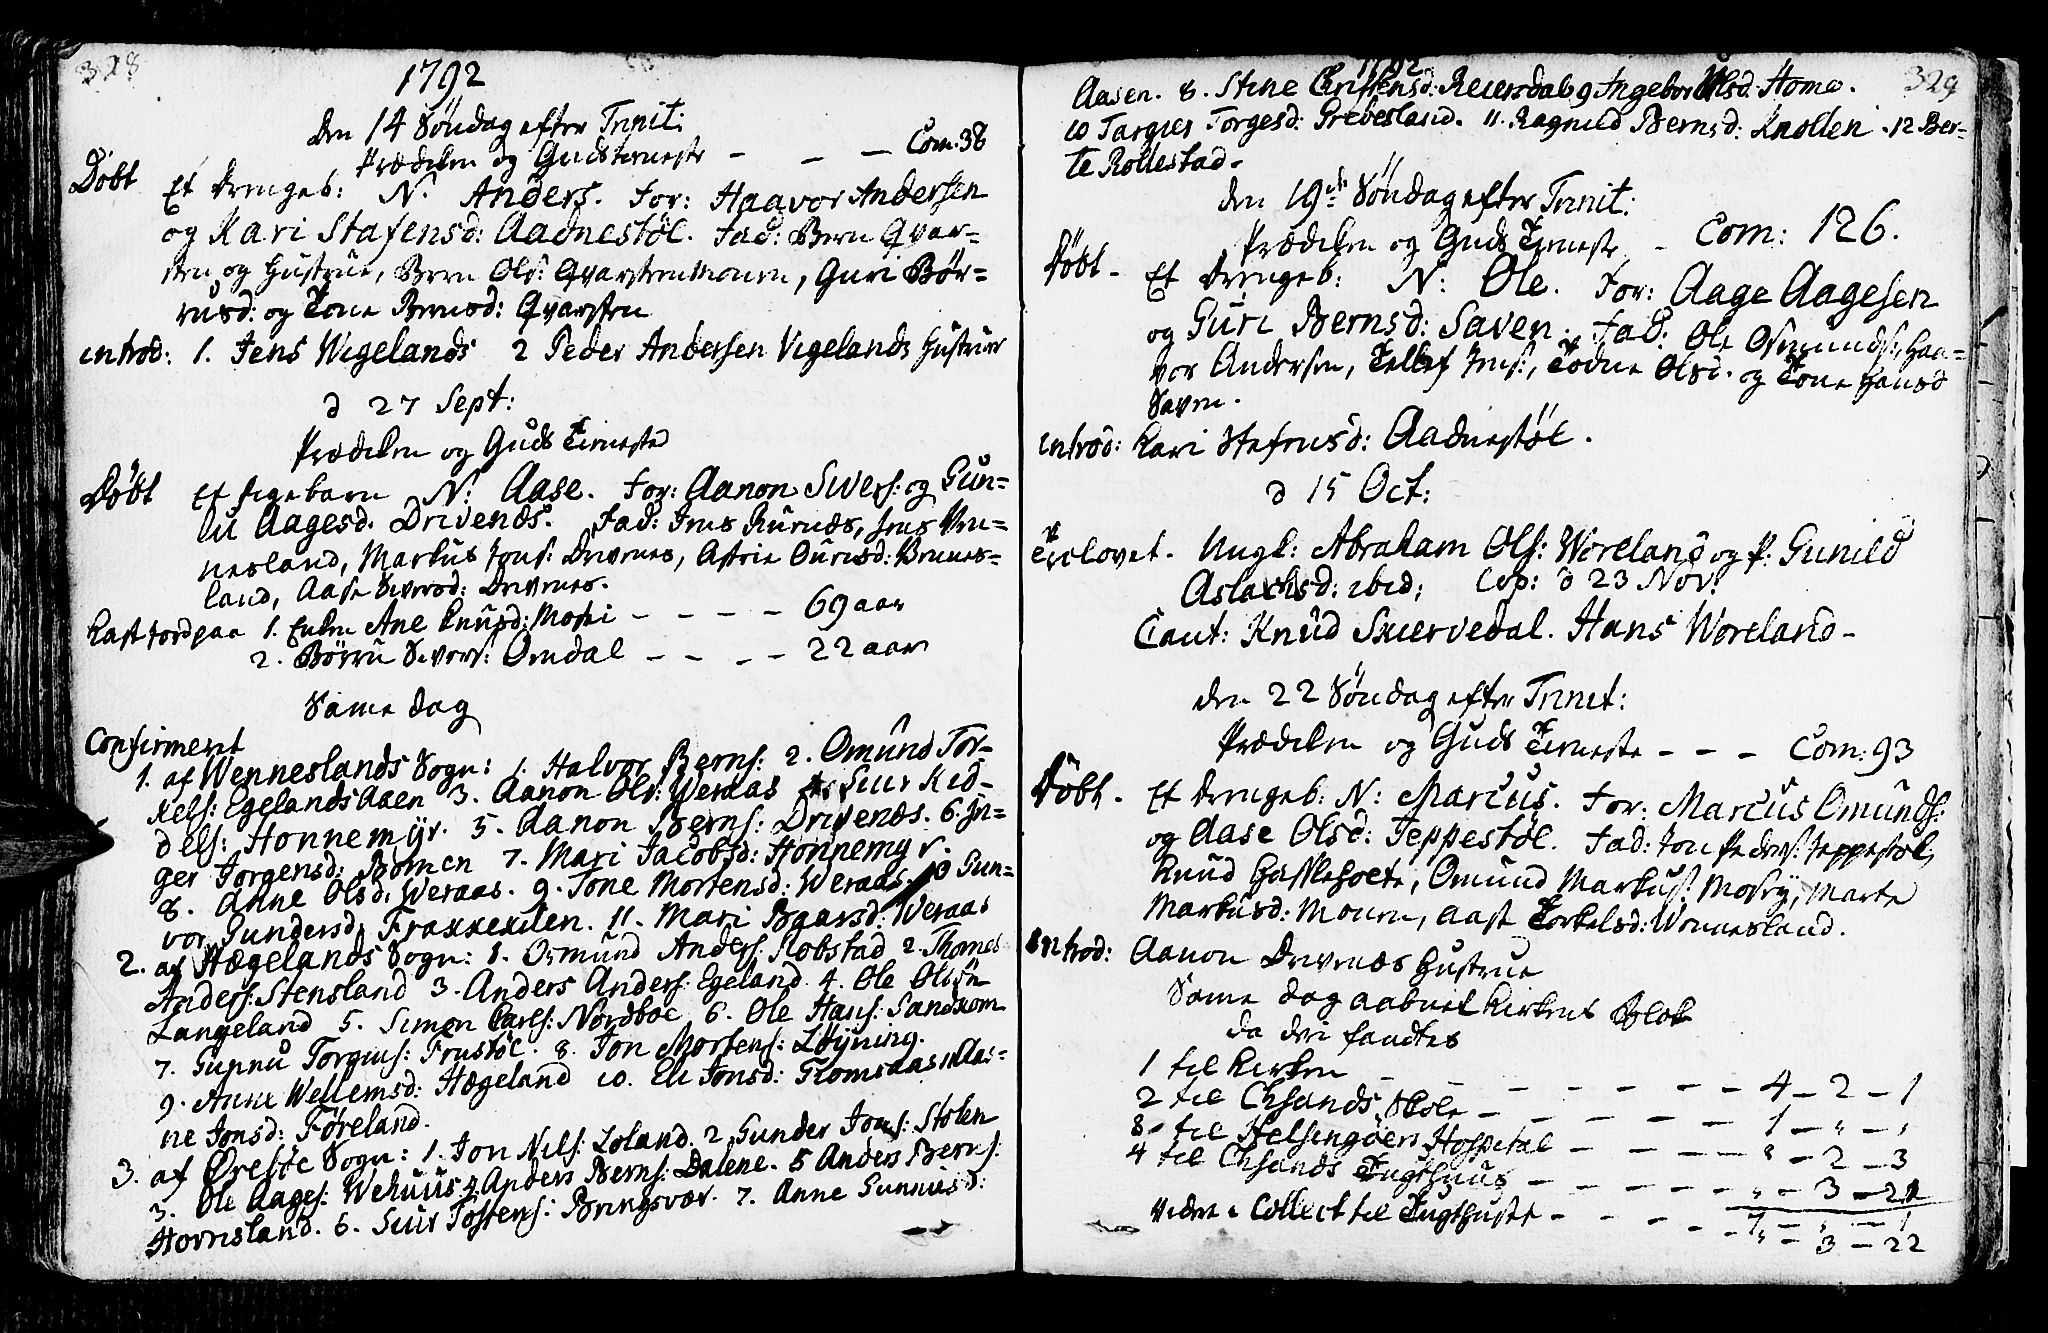 328
1792
den 14 Söndag efter Trinit:
Prædiken og Gudstieneste - - - Com: 38
Döbt Et drengeb: N. Anders. For: Haavor Andersen
og Kari Stafensd: Aadnestöl. Fad: Bern Qvar-
sten og Hustrue, Bern Ols: Qvarstenmonen, Guri Bör-
rusd: og Tone Bernsd: Qvarsten
introd: 1. Jens Wigelands 2 Peder Andersen Vigelands Hustruer
d 27 Sept:
Prædiken og Guds Tieneste
Döbt Et pigebarn N: Aase. For: Aanon Sivers: og Gun-
Aagesd. Drivenes. Fad: Jens Jens Ven-
nesland, Markus Jons: Drivenes, Astrie Venes-
land, Aase Siversd: Drivenes.
Kast Jord paa 1. Enken Ane Knudsd: Moseï - - - - 69 aar
2. Börru Sivers: Omdal - - - - 22 aar
Same dag
Confirmerit
1. af Wenneslands Sogn: 1. Halvor Berns: 2. Omund Tor-
kels: Egelandsaaen 3. Aanon Ols: Weraas 4. Siur Kid-
dels: Honnemyr. 5. Aanon Berns: Drivenes. 6. In-
ger Jorgensd: Bomen 7. Mari Jacobsd: Honnemyr.
8. Anne Olsd: Weraas. 9. Tone Mortensd: Weraas. 10 Gun-
vor Gundersd, Frakkekilen. 11. Mari Bgaarsd: Weraas
2. af Hægelands Sogn: 1. Osmund Anders: Robstad 2. Thomes
Anders: Stensland 3. Anders Anders: Egeland. 4. Ole Olsön
Langeland 5. Simon Carls: Nordboe 6. Ole Hans: Sandkom
7. Gunnu Torgius: Frustöl. 8. Jon Mortens: Löyning.
9. Anne Wellemsd: Hægeland 10. Eli Jonsd: Fromsaas 11 Aas-
ne Jonsd: Föreland.
3. af Öveböe Sogn: 1. Jon Nils: Loland. 2 Gunder Jons: Stolen
3. Ole Aages: Wehuus 4 Anders Berns: Dalene. 5 Anders Berns:
Horrisland. 6. Siur Tostens: Bringsvær. 7. Anne Gunnusd:
329
1792
Aasen. 8. Stine Christensd: Reiersdal 9 Ingebor Olsd: Home.
10 Targier Torgesd: Grebesland. 11. Ragnild Bernsd: Knollen. 12 Ber-
te Rollestad.
den 19de Söndag efter Trinit:
Prædiken og Guds Tieneste - Com: 126.
Döbt - Et drengeb: N: Ole. For: Aage Aagesen
og Guri Bernsd: Saven. Fad: Ole Osmunds:, Haa-
vor Andersen, Tellef Jens:, Todne Olsd. og Tone Hansd
Saven.
introd: Kari Stefensd: Aadnestöl.
d 15 Oct:
Troelovet. Ungk: Abraham Ols: Woreland og P: Gunild
Aslachsd: ibid; Cop: d 23 Nov:
Caut: Knud Skiervedal. Hans Woreland -
den 22 Söndag efter Trinit:
Prædiken og Guds Tieneste - - - Com: 93
Döbt. Et drengeb: N: Marcus. For: Marcus Omunds:
og Aase Olsd: Jeppestöl. Fad: Jon Peders: Jeppestöl,
Knud Omund Markus: Mosey, Marte
Markusd: Monen, Aase Torkelsd: Wennesland.
Introd: Aanon Drivenes Hustrue
Same dag aabnet Kirkens Blok
da deri fandtes
1 til Kirken - - - - - - - - 4 - 2 - 1
2 til Chsands Skole - - - - - - 1 - " - "
3 til Helsingöers Hospital - - - - " - 2 - 3
4 til Chsands Tugthuus - - - - - " - 3 - 21
7 - " - 1
Collect til Tugthuset - - - - - " - 3 - 22